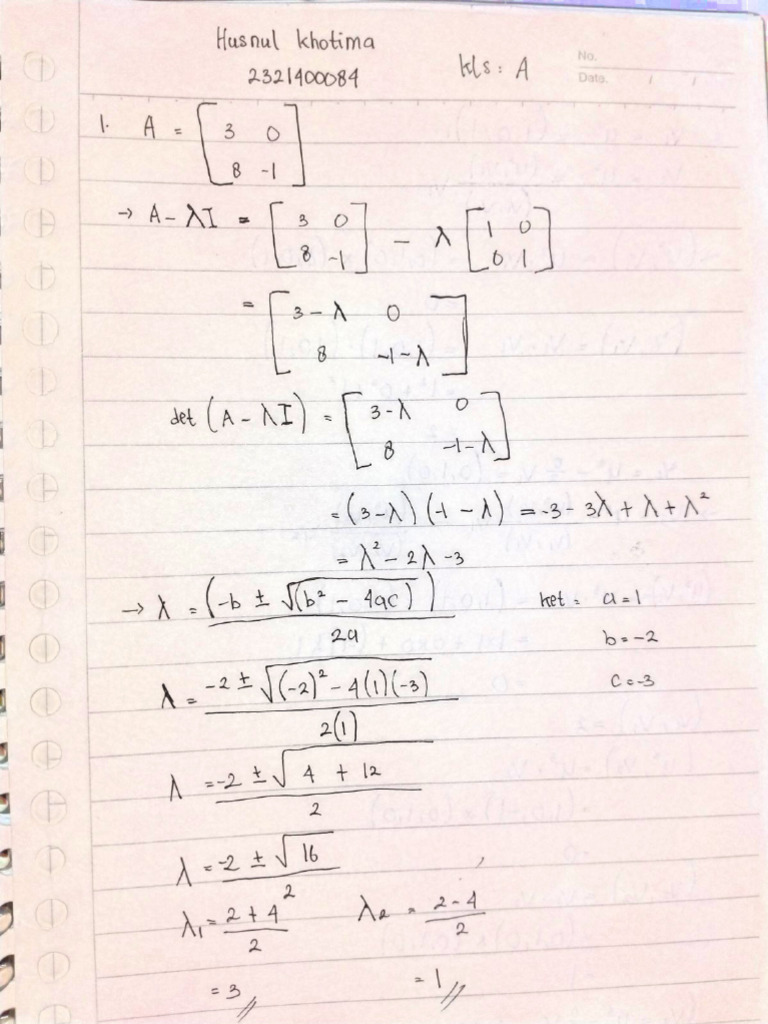 Husnul Khotima
2321400084
Kls : A
No.
Date.
1. A = [3 0
8 -1]
→ A - λI = [3 0
8 -1] - λ [1 0
0 1]
= [3 - λ 0
8 -1 - λ]
det (A - λI) = [3 - λ 0
8 -1 - λ]
= (3 - λ) (-1 - λ) = -3 - 3λ + λ + λ²
= λ² - 2λ - 3
→ λ = (-b ± √(b² - 4ac))
2a
ket = a = 1
b = -2
c = -3
λ = -2 ± √(-2)² - 4(1)(-3)
2(1)
λ = -2 ± √4 + 12
2
λ = -2 ± √16
2
λ₁ = 2 + 4
2
λ₂ = 2 - 4
2
= 3 //
= 1 //